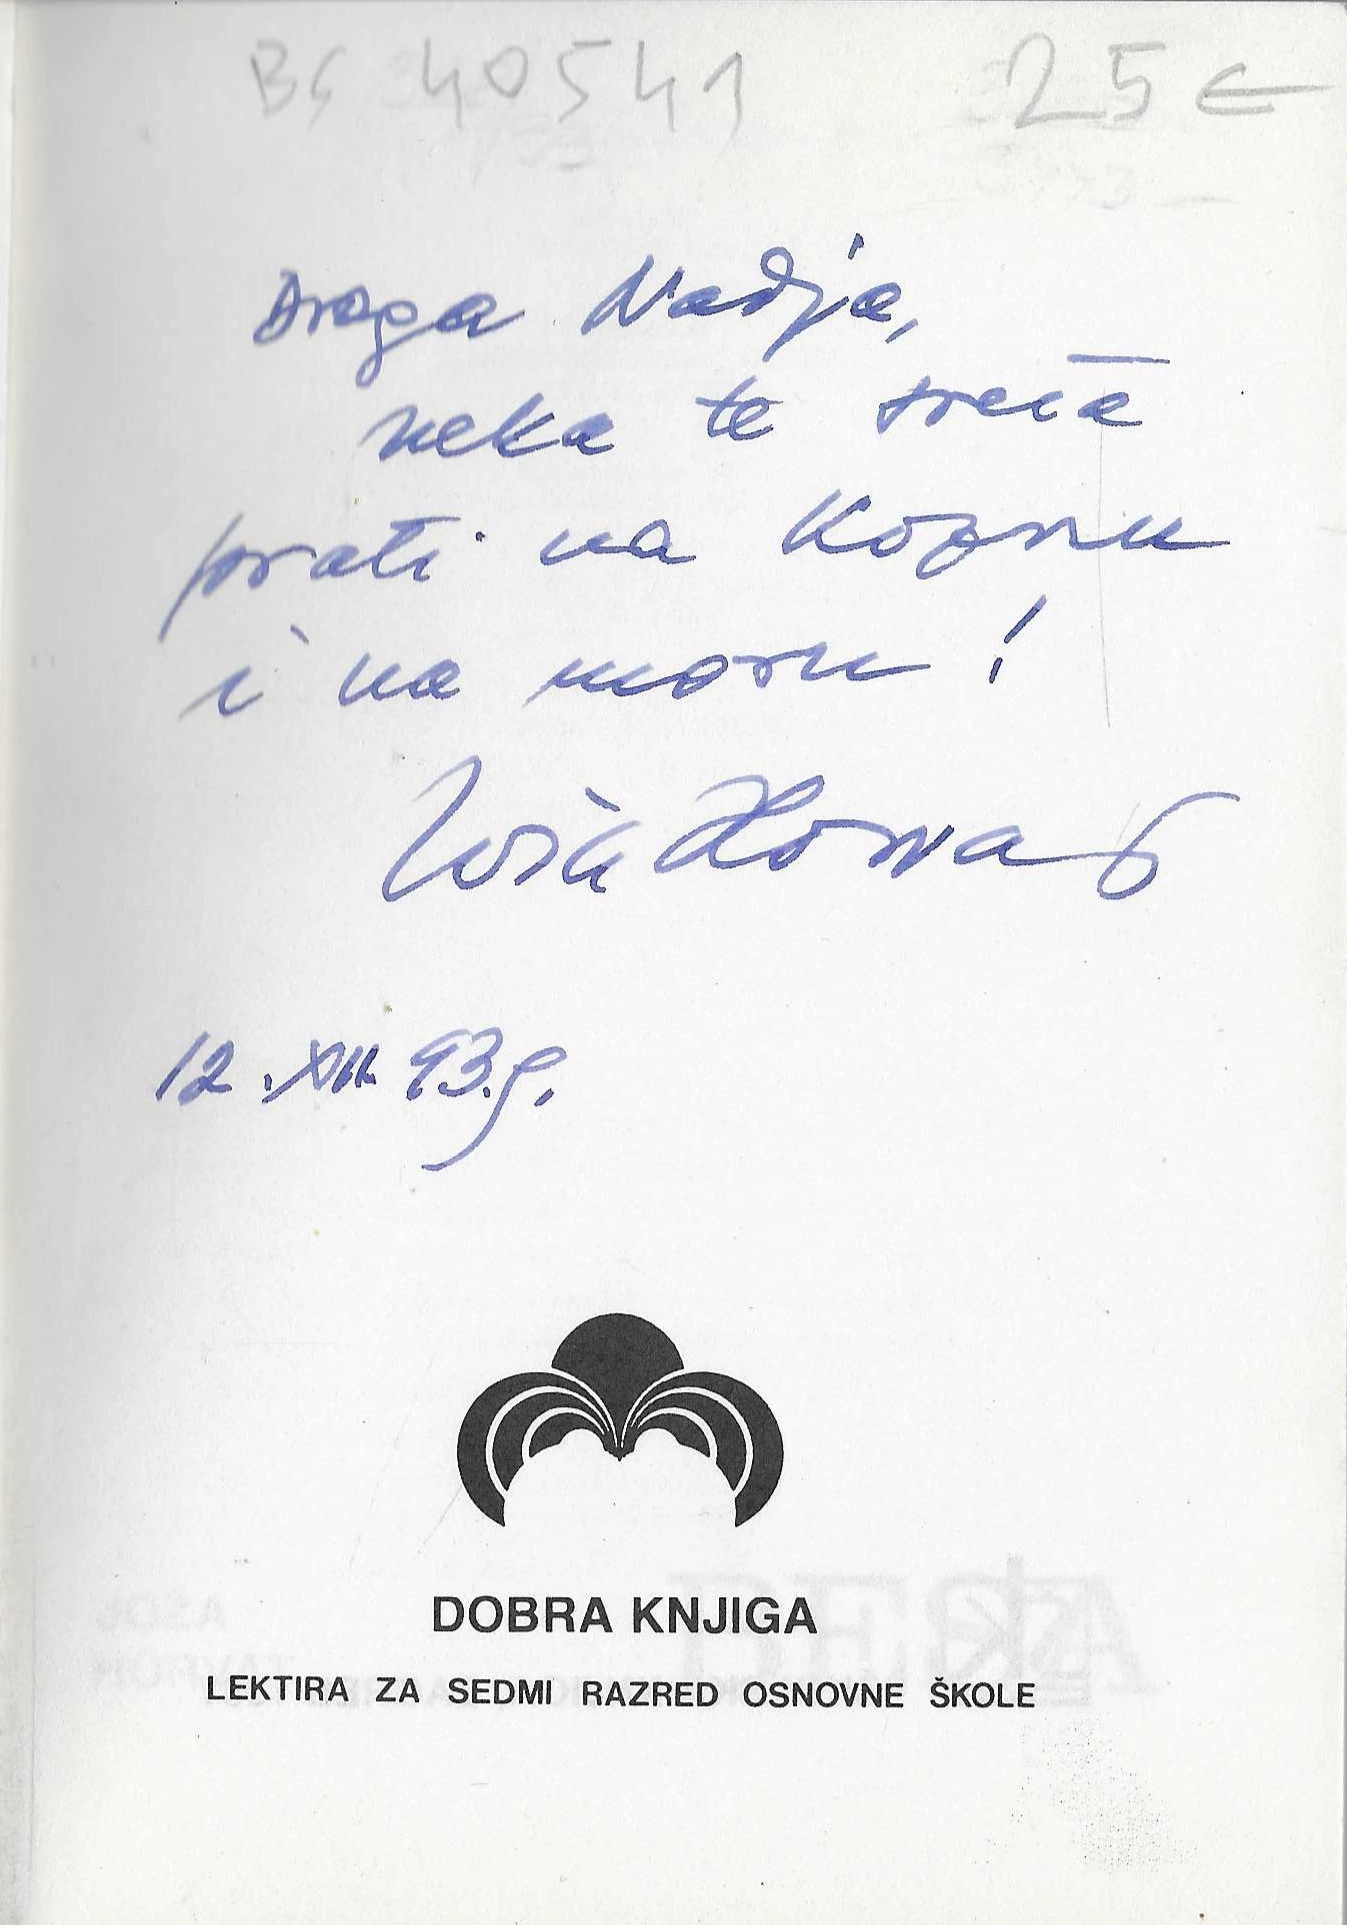 BS 40541 25€
Draga Nadja,
neka te sreća
prati na kopnu
i na moru!
Joža Horvat
12. XII. 93. g.
DOBRA KNJIGA
LEKTIRA ZA SEDMI RAZRED OSNOVNE ŠKOLE